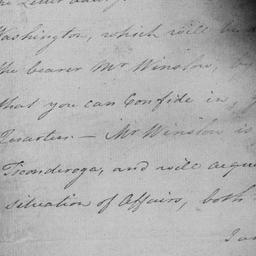 the Letter
Washington, which will be
the bearer Mr Winslow, by
that you can Confide in,
Quarters — Mr Winslow is
Ticonderoga, and will acqu
situation of Affairs, both
I am